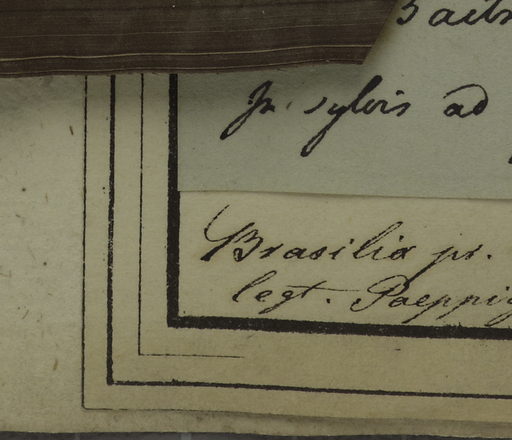 In sylvis ad
Brasilia pr.
legt. Poeppig